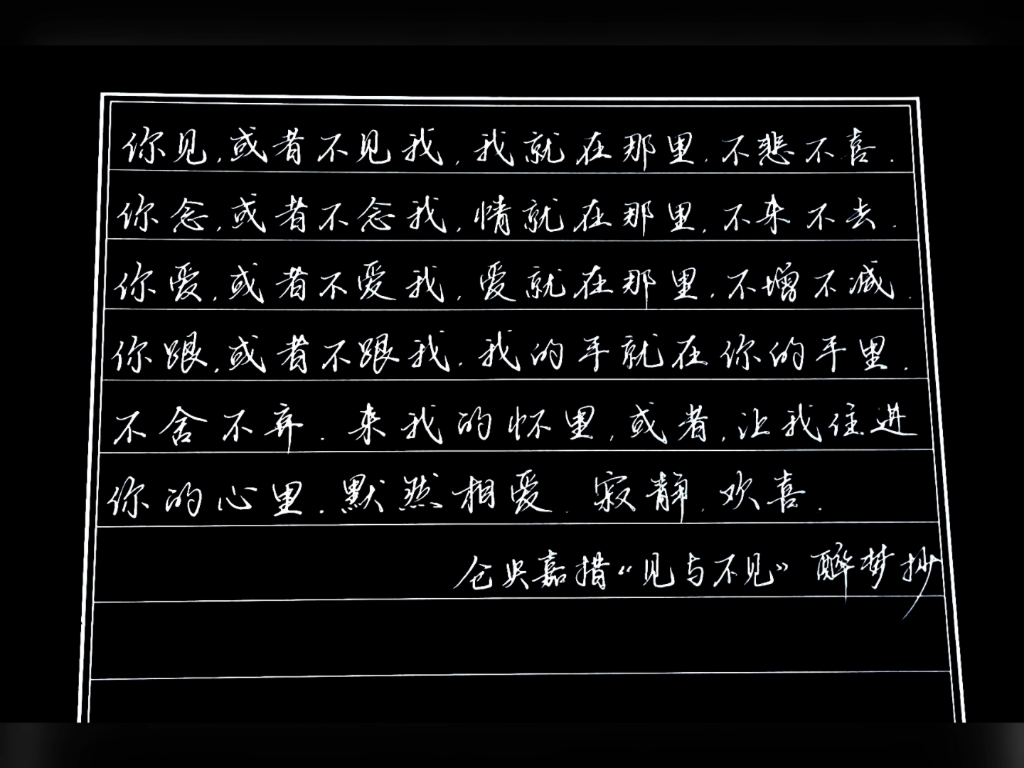 你见,或者不见我,我就在那里,不悲不喜.
你念,或者不念我,情就在那里,不来不去.
你爱,或者不爱我,爱就在那里,不增不减.
你跟,或者不跟我.我的手就在你的手里.
不舍不弃.来我的怀里,或者,让我住进
你的心里.默然相爱.寂静.欢喜.
仓央嘉措“见与不见”醉梦抄